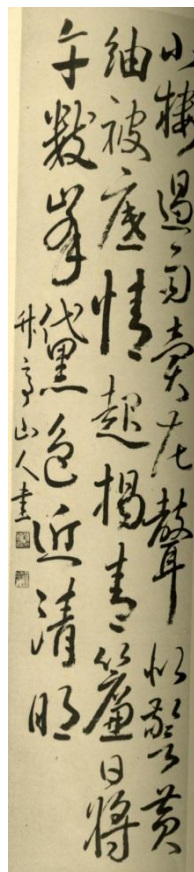 小樓過雨賣花聲似驚黃
紬被底情起揭青簾日將
午數峯黛色近清明
亭山人書